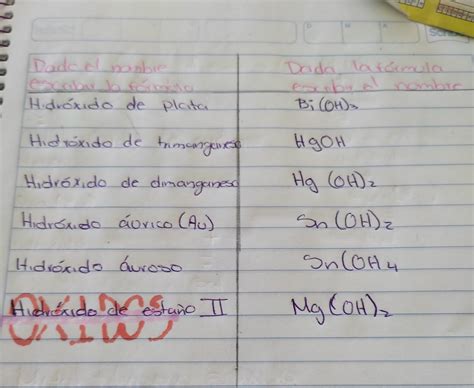 Dado el nombre Dada la fórmula
escribar la fórmula escriba el nombre
Hidróxido de plata Bi(OH)3
Hidróxido de trimanganeso HgOH
Hidróxido de dimanganeso Hg(OH)2
Hidróxido áurico (Au) Sn(OH)2
Hidróxido áuroso Sn(OH4
Hidróxido de estaño II Mg(OH)2
OXIDOS